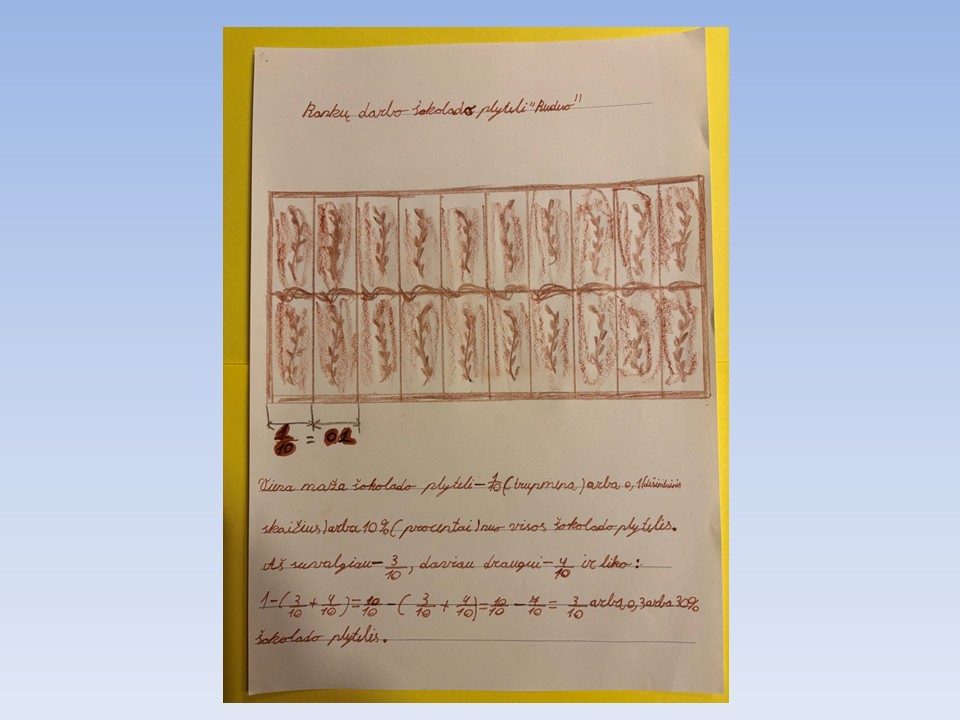 Rankų darbo šokolado plyteli "Ruduo"
1/10 = 0.1
Viena maža šokolado plyteli – 1/10 (trupmena) arba 0,1 (dešimtainis
skaičius) arba 10% (procentai) nuo visos šokolado plytelės.
Aš suvalgiau – 3/10, daviau draugui – 4/10 ir liko:
1 - (3/10 + 4/10) = 10/10 - (3/10 + 4/10) = 10/10 - 7/10 = 3/10 arba 0,3 arba 30%
šokolado plytelės.